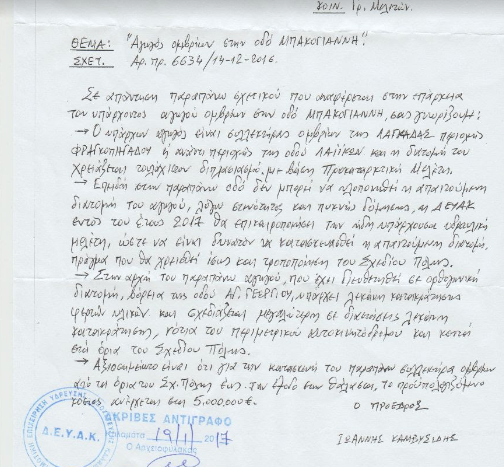 ΚΟΙΝ. Γρ. Μελετών.
ΘΕΜΑ: "Αγωγός ομβρίων στην οδό ΜΠΑΚΟΓΙΑΝΝΗ".
ΣΧΕΤ. Αρ. πρ. 6634/14-12-2016.
Σε απάντηση παραπάνω σχετικού που αναφέρεται στην επάρκεια
του υπάρχοντος αγωγού ομβρίων στην οδό ΜΠΑΚΟΓΙΑΝΝΗ, σας γνωρίζουμε:
→ Ο υπάρχων αγωγός είναι συλλεκτήρας ομβρίων της ΛΑΓΚΑΔΑΣ περιοχής
ΦΡΑΓΚΟΠΗΓΑΔΟΥ ή ανάντι περιοχής της οδού ΛΑΪΚΩΝ και η διατομή του
χρειάζεται τουλάχιστον διπλασιασμό, με βάση Προκαταρκτική Μελέτη.
→ Επειδή στην παραπάνω οδό δεν μπορεί να υλοποιηθεί η απαιτούμενη
διατομή του αγωγού, λόγω στενότητας και πυκνής δόμησης, η ΔΕΥΑΚ
εντός του έτους 2017 θα επικαιροποιήσει την ήδη υπάρχουσα υδραυλική
μελέτη, ώστε να είναι δυνατόν να κατασκευασθεί η απαιτούμενη διατομή,
πράγμα που θα χρειασθεί ίσως και τροποποίηση του Σχεδίου Πόλης.
→ Στην αρχή του παραπάνω αγωγού, που έχει διευθετηθεί σε ορθογωνική
διατομή, βόρεια της οδού ΑΓ. ΓΕΩΡΓΙΟΥ, υπάρχει λεκάνη κατακράτησης
φερτών υλικών και σχεδιάζεται μεγαλύτερη σε διαστάσεις λεκάνη
κατακράτησης, νότια του περιμετρικού αυτοκινητόδρομου και κοντά
στα όρια του Σχεδίου Πόλης.
→ Αξιοσημείωτο είναι ότι για την κατασκευή του παραπάνω συλλεκτήρα ομβρίων
από τα όρια του Σχ. Πόλης έως την έξοδο στη θάλασσα, το προϋπολογιζόμενο
κόστος ανέρχεται σε 5.000.000€.
Ο ΠΡΟΕΔΡΟΣ
ΑΚΡΙΒΕΣ ΑΝΤΙΓΡΑΦΟ
19/1/2017
Ο Αρχειοφύλακας
Δ.Ε.Υ.Α.Κ.
ΙΩΑΝΝΗΣ ΚΑΜΒΥΣΙΔΗΣ